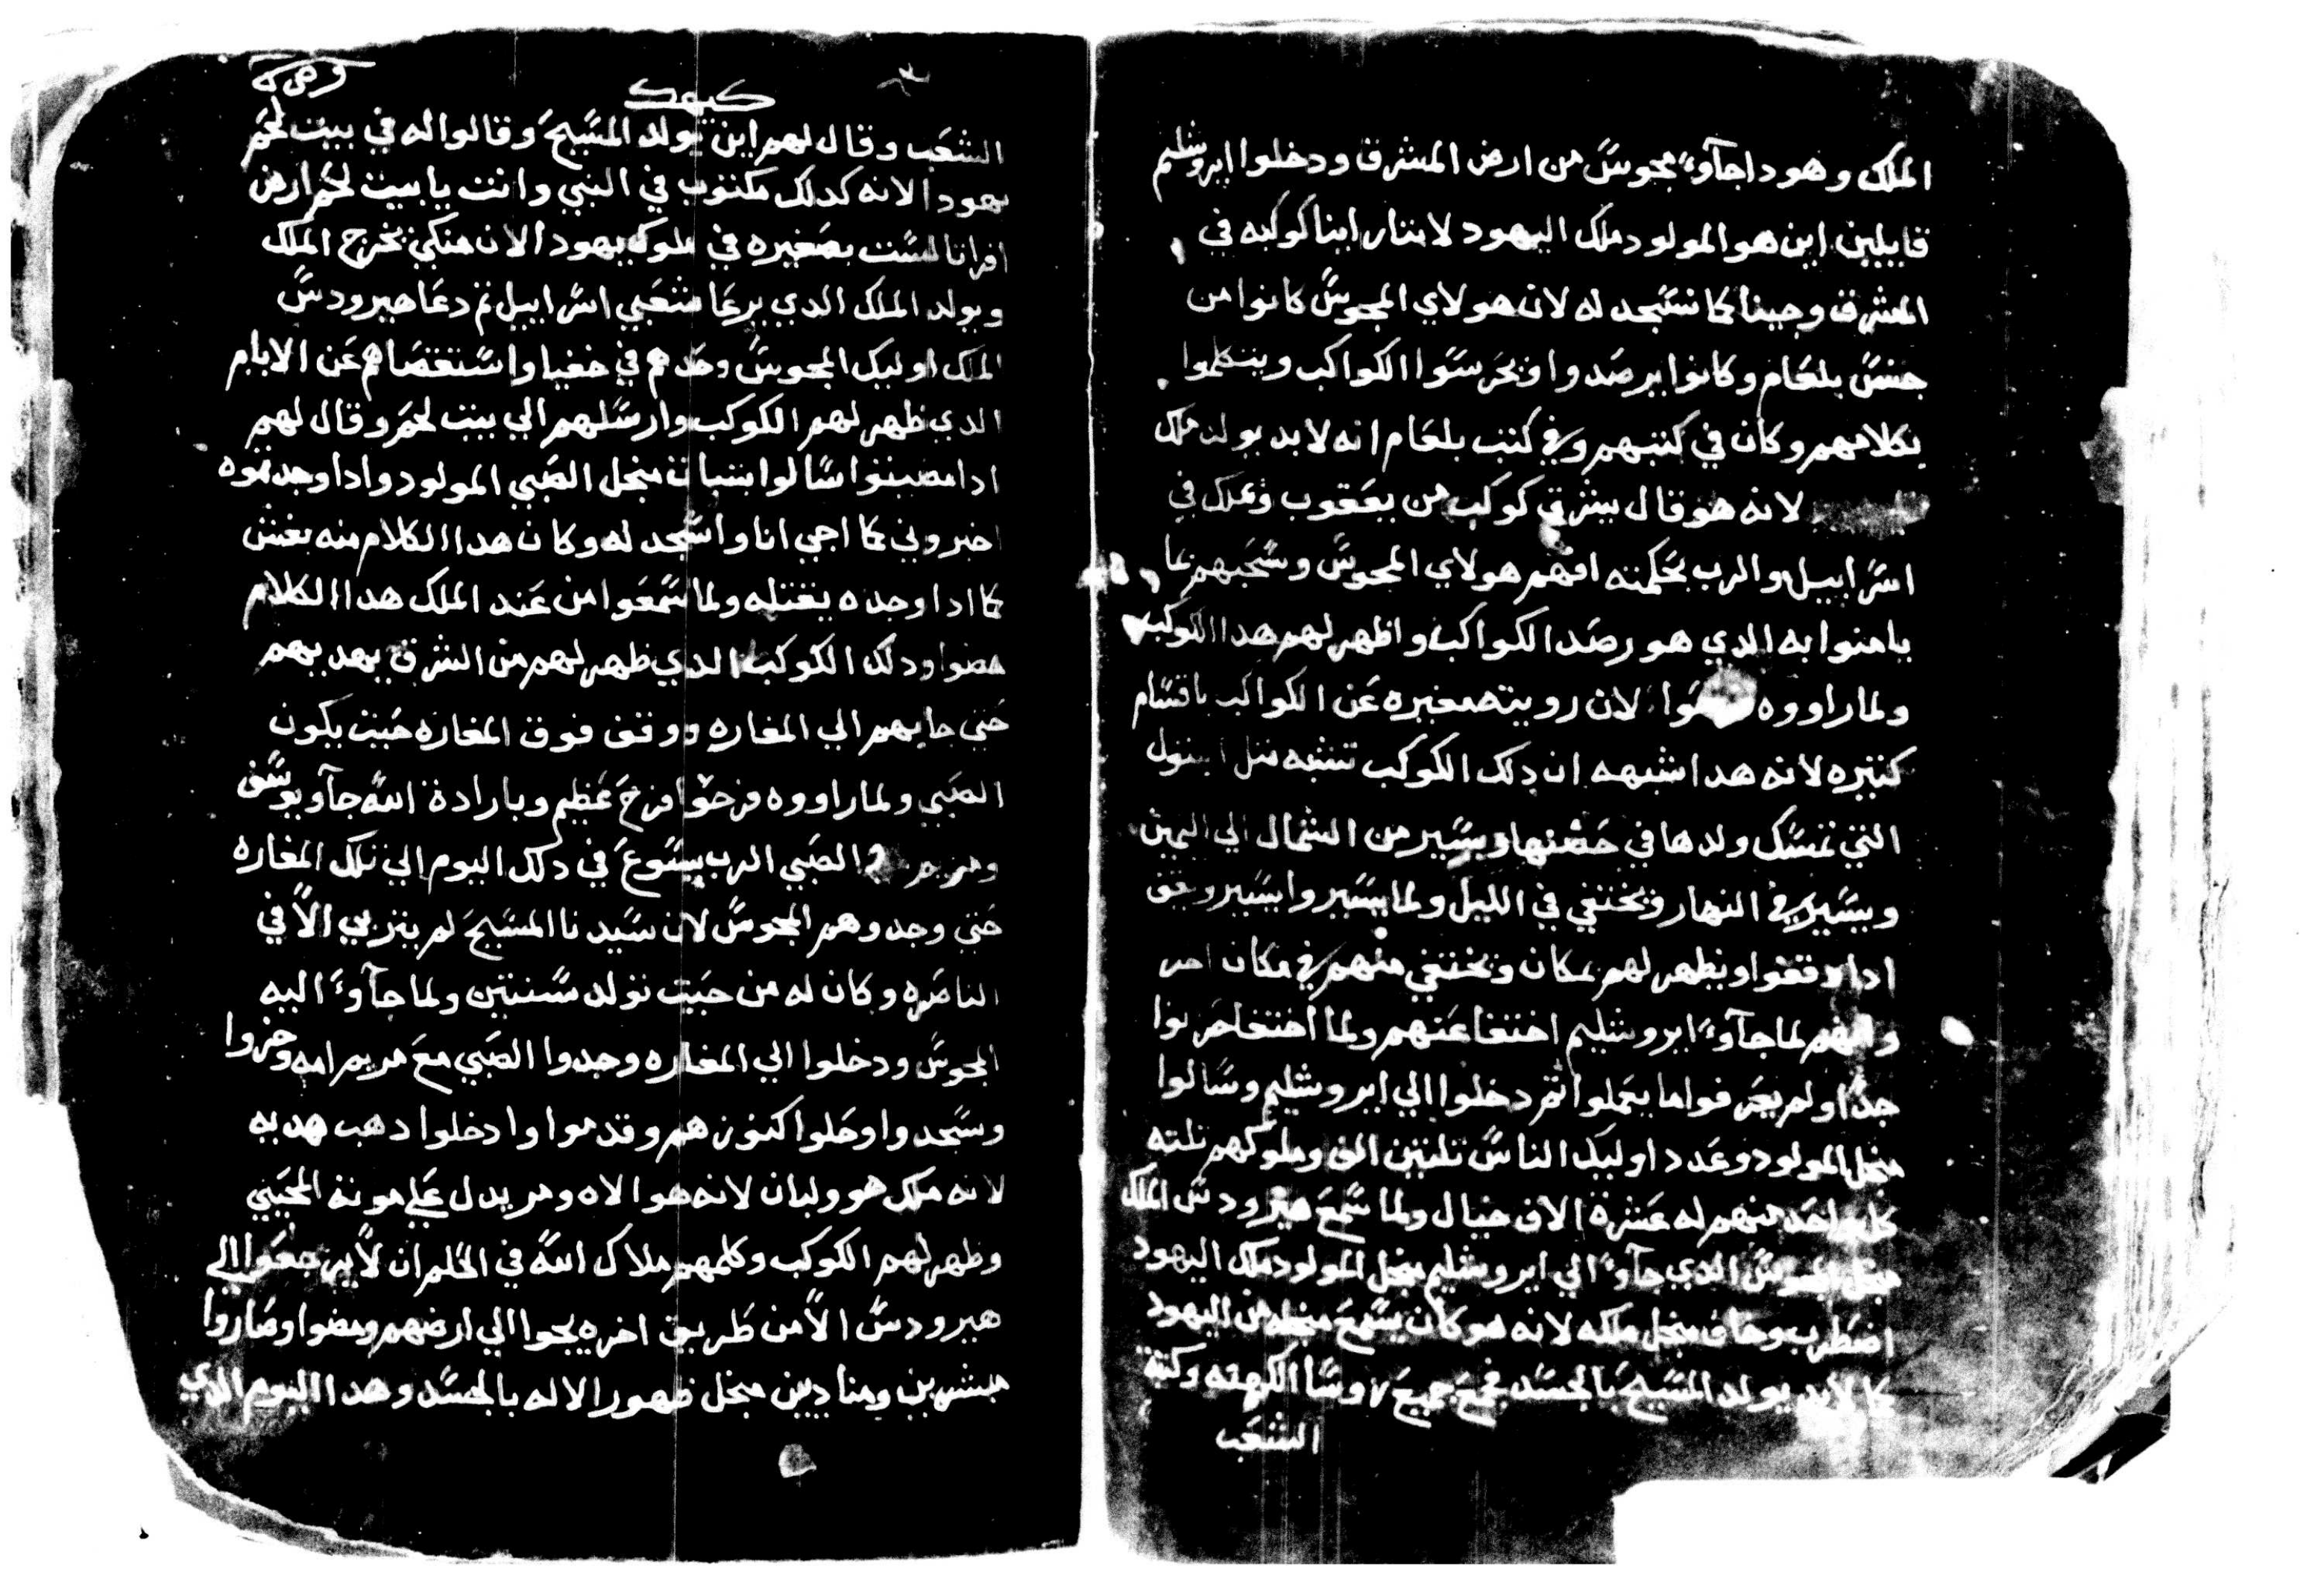 الملك وهودا جآوءً مجوسً من ارض المشرق ودخلوا ايروشليم
قايلين اين هو المولود ملك اليهود لاننا راينا كوكبه في
المشرق وجينا كما نسجد له لان هولاي المجوس كانوا من
جنس بلعام وكانوا يرصدوا ويحرسوا الكواكب ويتكلموا
بكلامهم وكان في كتبهم وفي كتب بلعام انه لابد يولد ملك
لانه هو قال يشرق كوكب من يعقوب ويملك في
اسراييل والرب بحكمته افهم هولاي المجوس وسحبهم بما
يامنوا به الدي هو رصد الكواكب واظهر لهم هدا الكوكب
ولما راووه لان رويته مغيره عن الكواكب باقسام
كتيره لانه هدا شبهه ان دلك الكوكب تشبه متل ابتول
التي تمسك ولدها في حضنها ويسير من الشمال الي اليمين
ويسير في النهار ويختفي في الليل ولما يسيروا يسير ويقف
ادا وقفوا ويظهر لهم بمكان ويختفي منهم في مكان اخر
وانهم لما جآوءً ايروشليم اختفا عنهم ولما اختفا حزنوا
جدًا ولم يعرفوا ما يعملوا تم دخلوا الي ايروشليم وسالوا
منجل المولود وعدد اوليك الناس تلتين الف وملوكهم تلته
كل واحد منهم له عشرة الاف خيال ولما سمع هيرودس الملك
منجل المجوس الدي جآوءً الي ايروشليم منجل المولود ملك اليهود
اضطرب وخاف منجل ملكه لانه هو كان يسمع منجله من اليهود
كما لابد يولد المسيح بالجسد فجمع جميع روسا الكهنه وكتبة
الشعب
كيهك
الشعب وقال لهم اين يولد المسيح وقالوا له في بيت لحم
يهودا لانه كدلك مكتوب في النبي وانت يا بيت لحم ارض
افراتا لست بصغيره في ملوك يهودا لان منكي يخرج الملك
ويولد الملك الدي يرعا شعبي اسراييل تم دعا هيرودس
الملك اوليك المجوس وحدهم في خفيا واستقصاهم عن الايام
الدي ظهر لهم الكوكب وارسلهم الي بيت لحم وقال لهم
ادا مضيتوا سالوا بتبات منجل الصبي المولود وادا وجدتموه
اخبروني كما اجي انا واسجد له وكان هدا الكلام منه بغش
كما ادا وجده يقتله ولما سمعوا من عند الملك هدا الكلام
مضوا ودلك الكوكب الدي ظهر لهم من الشرق يهديهم
حتي جا بهم الي المغاره ووقف فوق المغاره حيت يكون
الصبي ولما راووه فرحوا فرح عظيم وبارادة الله جآو يوسف
ومريم الصبي الرب يسوع في دلك اليوم الي تلك المغاره
حتي وجدوهم المجوس لان سيدنا المسيح لم يتربي الا في
الناصره وكان له من حيت تولد سنتين ولما جآوءً اليه
المجوس ودخلوا الي المغاره وجدوا الصبي مع مريم امه وخروا
وسجدوا وحلوا كنوزهم وقدموا وادخلوا دهب هديه
لانه ملك هو ولبان لانه هو الاه ومر يدل علي موته المحيي
وظهر لهم الكوكب وكلمهم ملاك الله في الحلم ان لا يرجعوا الي
هيرودس الا من طريق اخره يجوا الي ارضهم ومضوا وصاروا
مبشرين ومناديين منجل ظهور الاله بالجسد وهدا اليوم الدي